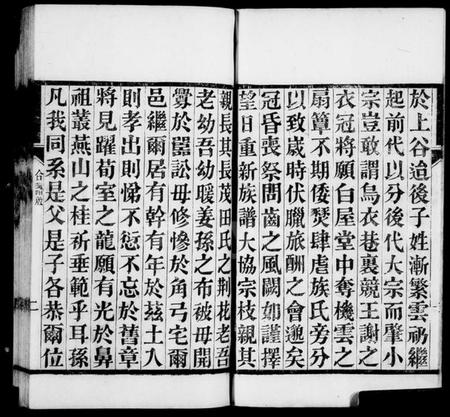 於上谷迨後子姓漸繁雲礽繼
起前代以分後代大宗而肇小
宗豈敢謂烏衣巷裏競王謝之
衣冠將願白屋堂中奪機雲之
扇簟不期倭燹肆虐族氏旁分
以致歲時伏臘旅酬之會邈矣
冠昏喪祭問齒之風闕如謹擇
望日重新族譜大協宗枝親其
親長其長茂田氏之荆花老吾
老幼吾幼暖姜孫之布被毋開
釁於嚚訟毋修慘於角弓宅爾
邑繼爾居有幹有年於茲土入
則孝出則悌不愆不忘於舊章
將見躍荀室之龍願有光於鼻
祖叢燕山之桂祈垂範乎耳孫
凡我同系是父是子各恭爾位